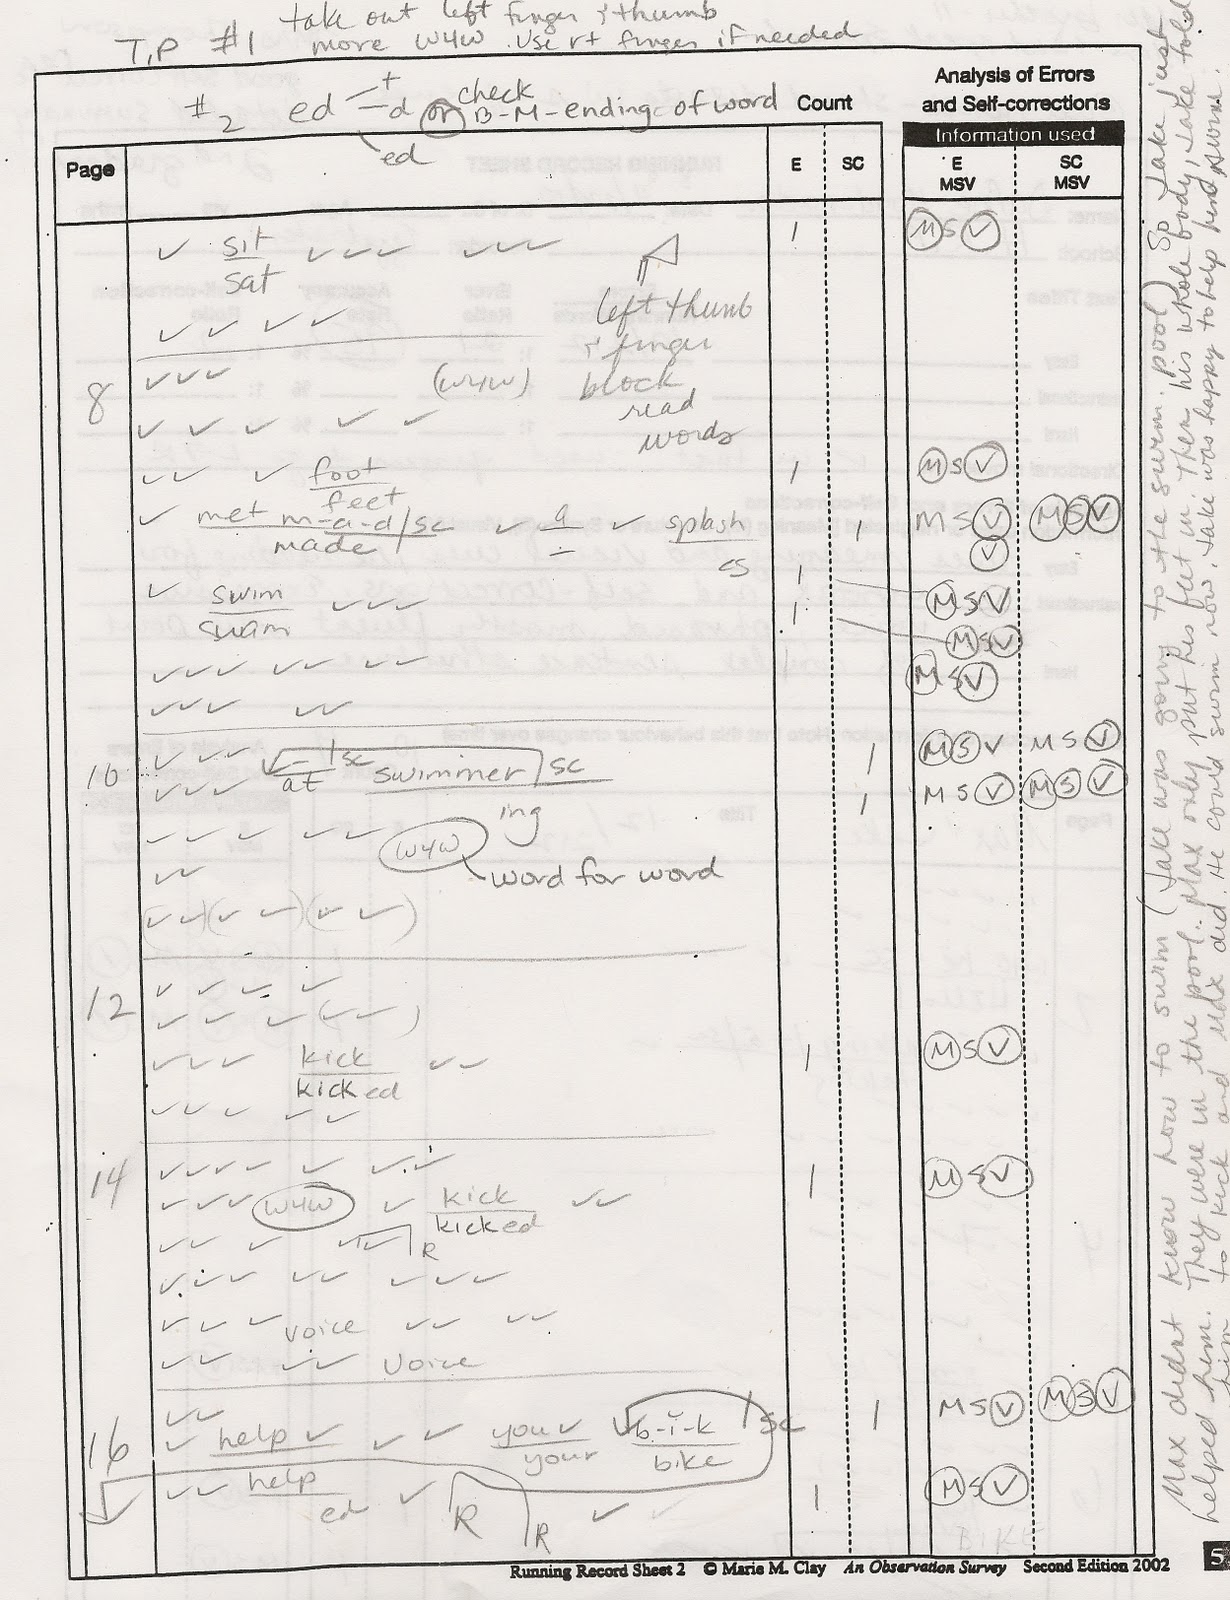 take out left finger & thumb
T,P #1 more W4W. Use rt finger if needed
#2 ed t d ed or check B-M-ending of word
Count
Analysis of Errors
and Self-corrections
Information used
Page E SC E MSV SC MSV
✓ sit ✓ ✓ ✓ ✓ ✓ ✓ 1 M S V
sat
left thumb
✓ ✓ ✓ ✓
& finger
8 ✓ ✓ ✓ (W4W) block
read
✓ ✓ ✓ ✓ ✓
words
✓ ✓ ✓ foot 1 M S V
feet
✓ met m-a-d/sc ✓ a ✓ splash 1 M S V M S V
made – es 1 V
✓ swim ✓ ✓ ✓ 1 M S V
swam M S V
✓ ✓ ✓ ✓ ✓ ✓ ✓ ✓ M S V
✓ ✓ ✓ ✓ ✓
10 ✓ ✓ ✓ ✓ –/sc 1 M S V M S V
at
✓ ✓ ✓ swimmer/sc 1 M S V M S V
ing
✓ ✓ ✓ ✓ ✓ W4W
✓ ✓ word for word
(✓ ✓)(✓ ✓)(✓ ✓)
12 ✓ ✓ ✓ ✓
✓ ✓ ✓ (✓ ✓)
✓ ✓ ✓ kick ✓ ✓ 1 M S V
kicked
✓ ✓ ✓ ✓ ✓
14 ✓ ✓ ✓ ✓ ✓ ✓ ✓
✓ ✓ ✓ W4W ✓ kick ✓ ✓ 1 M S V
kicked
✓ ✓ ✓ ✓ ✓ R
✓ ✓ ✓ ✓ ✓ ✓ ✓ ✓
✓ ✓ ✓ voice ✓ ✓ ✓ ✓
✓ ✓ ✓ ✓ voice
16 ✓ ✓ 1 M S V M S V
✓ help ✓ ✓ ✓ you ✓ ✓ b-i-k /sc
your bike
✓ ✓ help ✓ R R ✓ ✓ 1 M S V
ed
BIKE
Running Record Sheet 2 © Marie M. Clay An Observation Survey Second Edition 2002
5
Max didnt know how to swim (Jake was going to the swim. pool) So Jake just
helped him. They were in the pool. Max only put his feet in then his whole body, Jake told
him to kick and Max did. He could swim now. Jake was happy to help him swim.